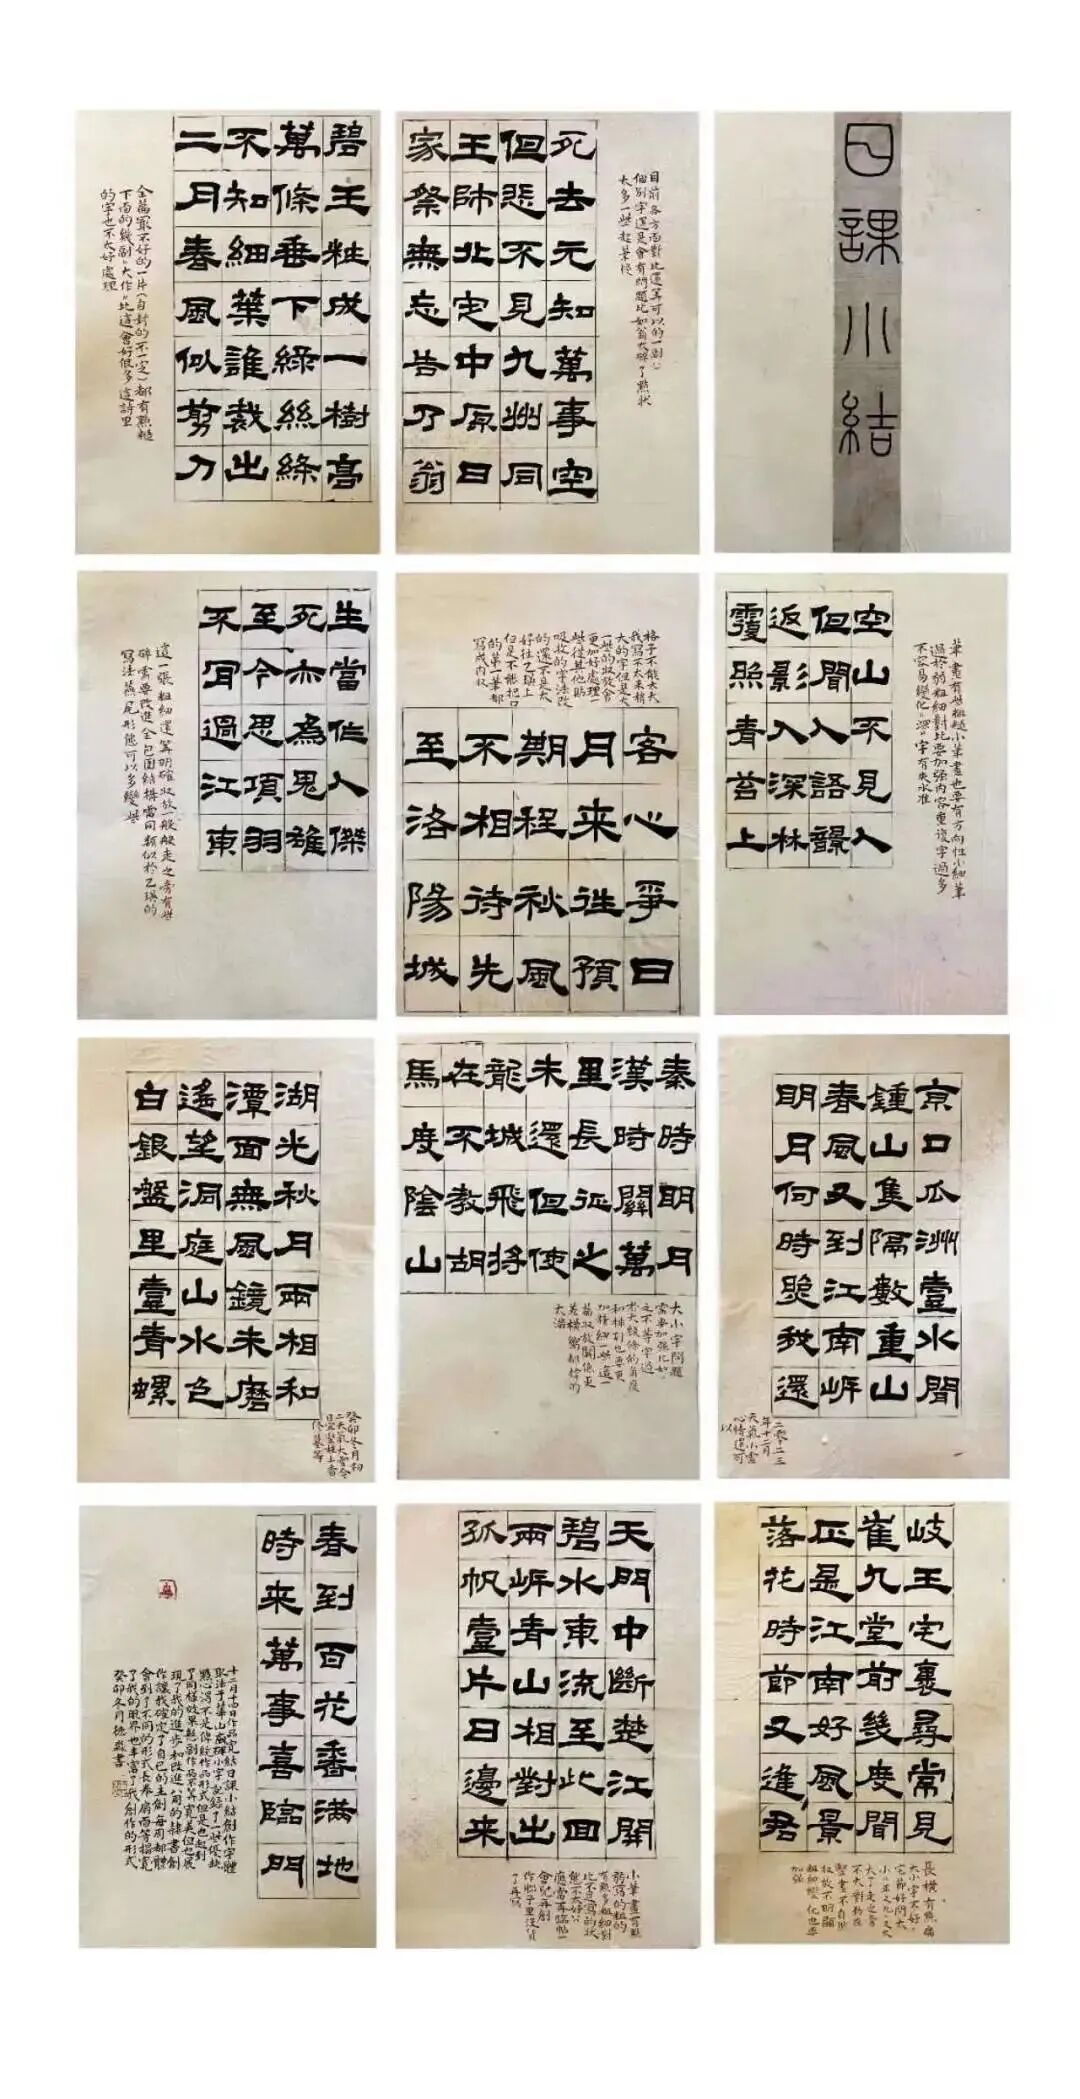 日課小結
目前各方面對比還算可以的一副
個別字還是會有問題比如翁太碎了點狀
太多一些起筆慢
死去元知萬事空
但悲不見九州同
王師北定中原日
家祭無忘告乃翁
碧玉粧成一樹高
萬條垂下綠絲絛
不知細葉誰裁出
二月春風似剪刀
全篇最不好的一片(自封的不一定)都有點糙
下面的幾副"大作"比這會好很多這詩里
的字也不太好處理
筆畫有些粗糙小筆畫也要有方向性小細筆
過於弱粗細對比要加强内容重復字過多
不容易變化"深"字有失水准
空山不見人
但聞人語響
返影入深林
覆照青苔上
格子不能太大
我寫不太来稍
大的字但是大
一些的收放會
更加好處理一
些從其他貼
吸收的字法改
的還不是太
好往乙瑛上
但是不能把口
的筆筆都
寫成内収
客心爭日
月来往預
期程秋風
不相待先
至洛陽城
生當作人傑
死亦為鬼雄
至今思項羽
不肯過江東
這一張粗細還算明確収放一般般走之旁有些
碎需要改進全包圍結構當同類似於乙瑛的
寫法燕尾形態可以多變些
京口瓜洲壹水間
鍾山隻隔數重山
春風又到江南岸
明月何時照我還
二零二三
年十二月
天氣小雪
心情還可
以
秦時明月
漢時關萬
里長征之
未還但使
龍城飛将
在不教胡
馬度陰山
大小字問題
需要加强比如
之不等字過
的角度
和排列也要更
加精細一些這一
篇収放關係更
太滿
湖光秋月兩相和
潭面無風鏡未磨
遥望洞庭山水色
白銀盤里壹青螺
癸卯冬月初
二天氣大雪今
修墓等
岐王宅裏尋常見
崔九堂前幾度聞
正是江南好風景
落花時節又逢君
長横有點偏
大小字不好
収放不明顯
粗細變化也要
加强
天門中斷楚江開
碧水東流至此回
兩岸青山相對出
孤帆壹片日邊来
小筆畫有點
弱寫的粗的
有點多粗細對
比不足寫的狀
態不太好
應當再臨帖一
會兒再創
了再寫
春到百花香滿地
時来萬事喜臨門
十二月十四日作品完結日課小結創作字體
取法于華山廟碑小字記録了一些優缺
點心得不是傳統作品形式但是也起到
了同樣效果態創作而不算完美但也展
現了我的進步和改進八周的隸書創
作讓我確定了自己的主創每周都體
會到了不同的形式長卷扇面等擴寬
了我的眼界也丰富了我創作的形式
癸卯冬月